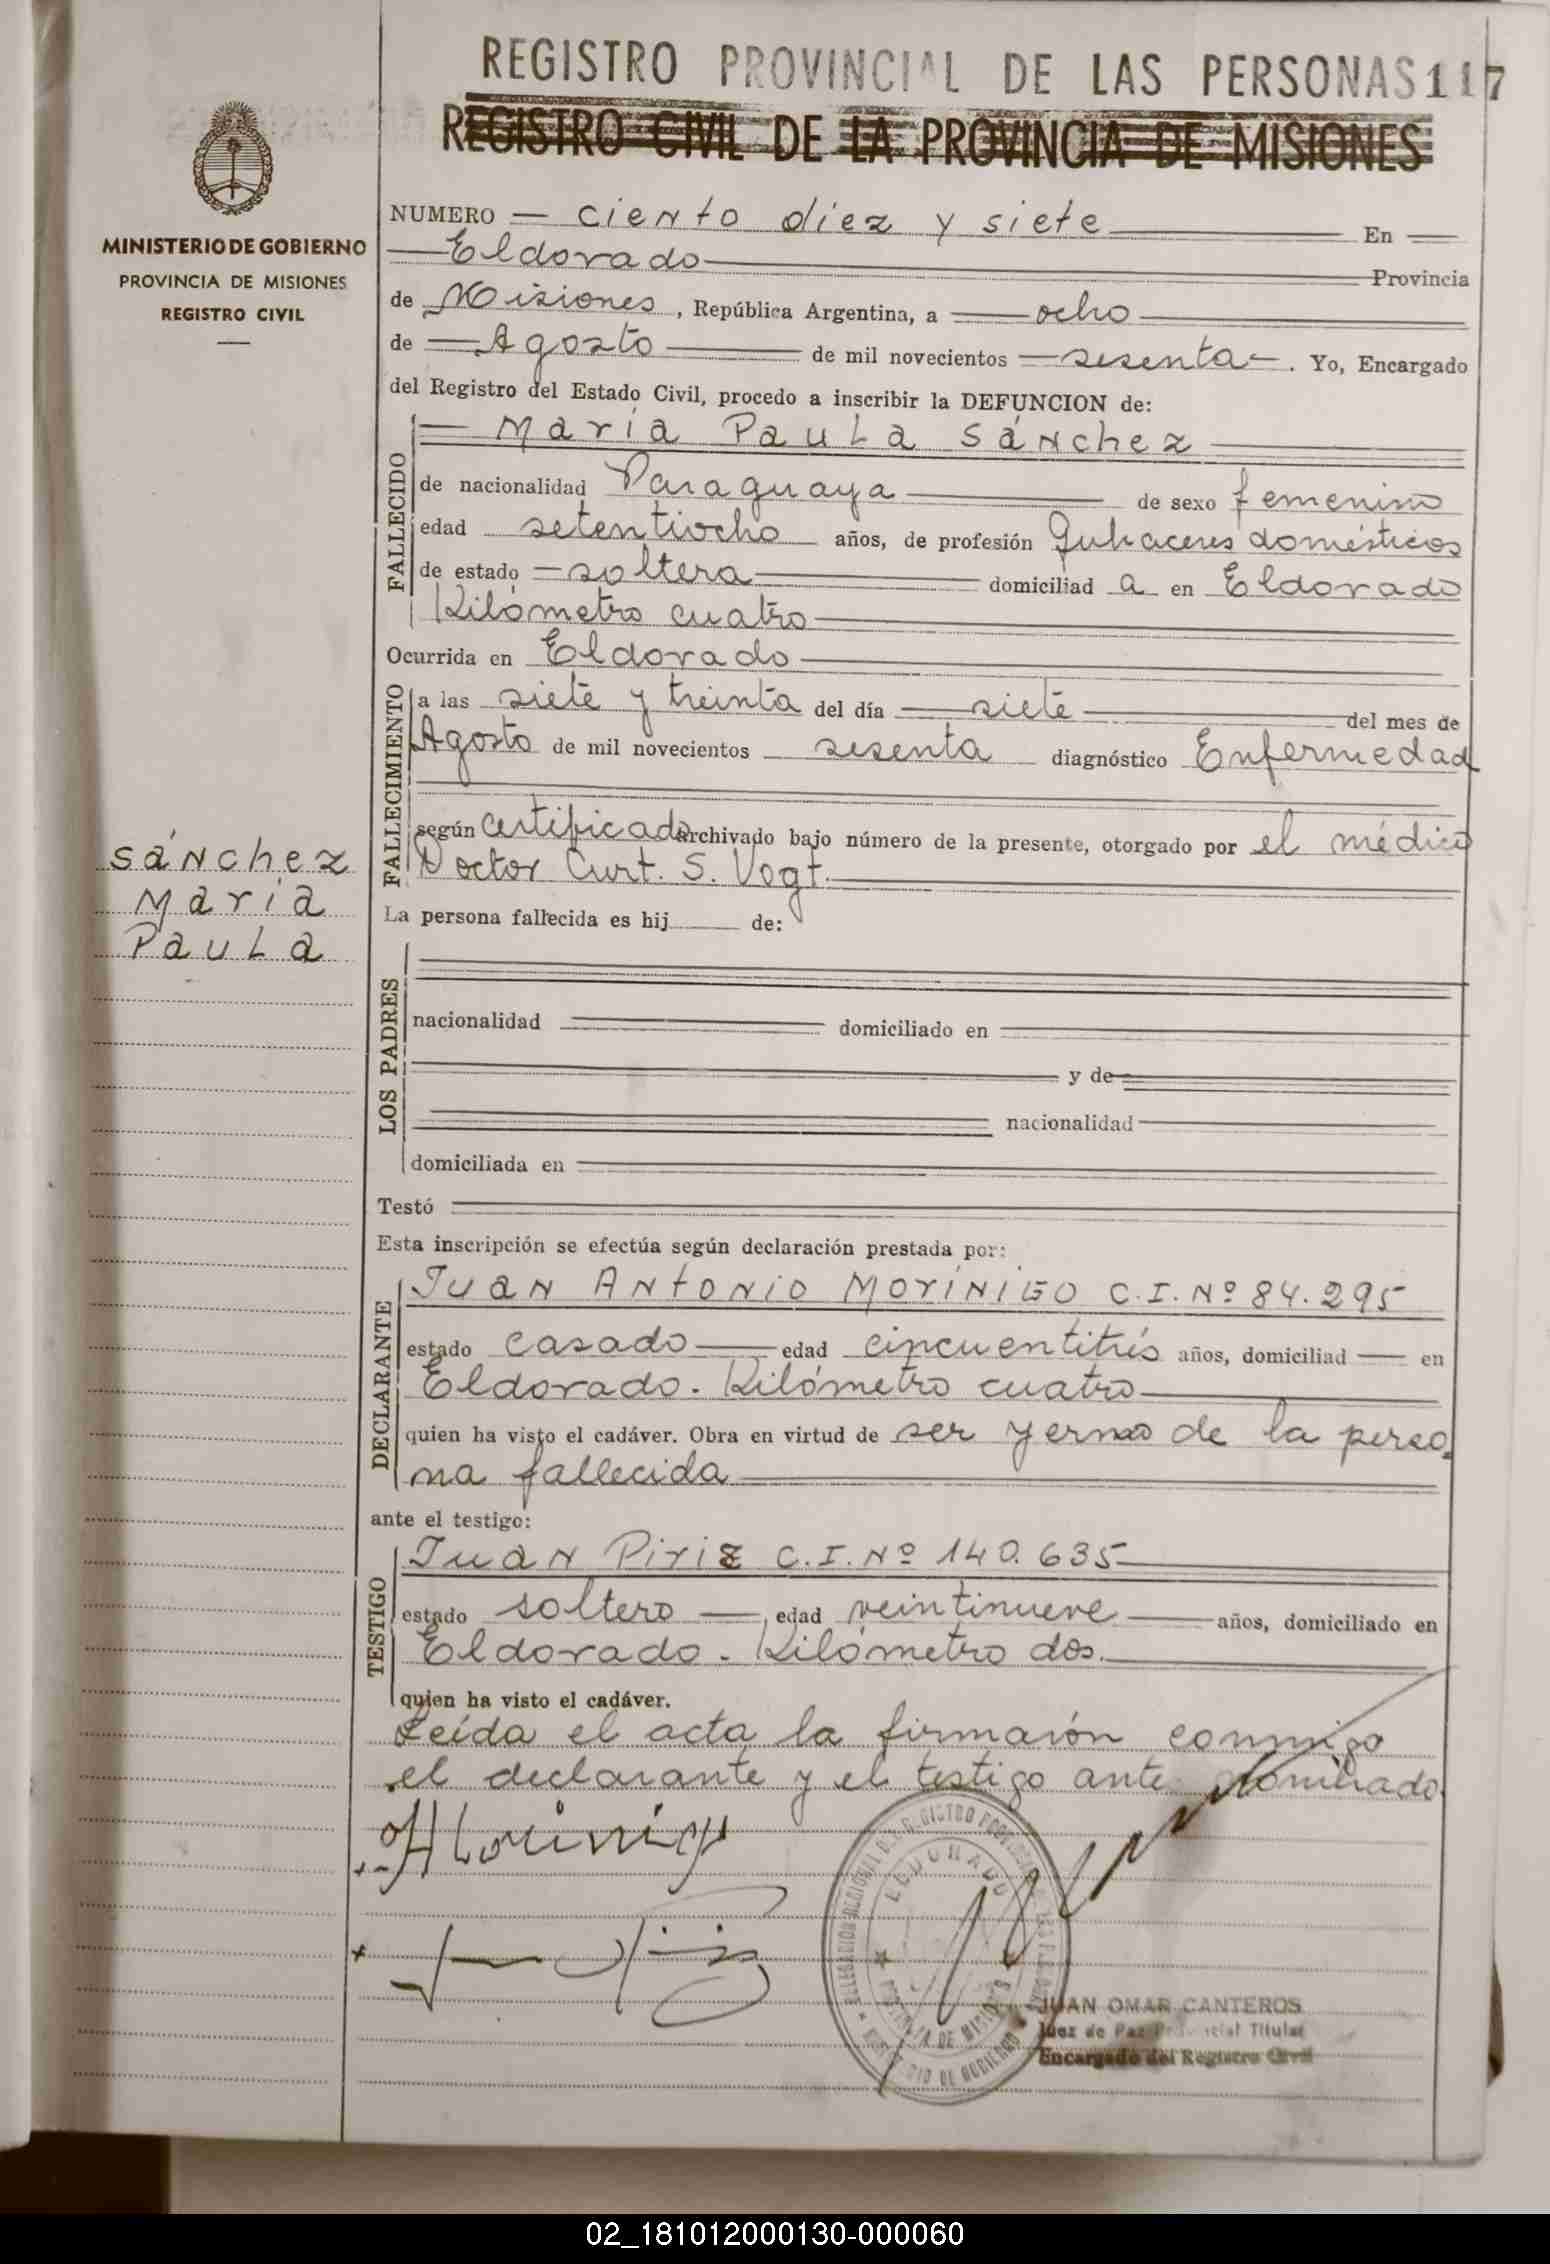 REGISTRO PROVINCIAL DE LAS PERSONAS 117
REGISTRO CIVIL DE LA PROVINCIA DE MISIONES
MINISTERIO DE GOBIERNO
PROVINCIA DE MISIONES
REGISTRO CIVIL
NUMERO — ciento diez y siete En
Eldorado Provincia
de Misiones, República Argentina, a ocho
de Agosto de mil novecientos sesenta. Yo, Encargado
del Registro del Estado Civil, procedo a inscribir la DEFUNCION de:
FALLECIDO
María Paula Sánchez
de nacionalidad Paraguaya de sexo femenino
edad setentiocho años, de profesión Quhaceres domésticos
de estado soltera domiciliad a en Eldorado
Kilómetro cuatro
Ocurrida en Eldorado
FALLECIMIENTO
a las siete y treinta del día siete del mes de
Agosto de mil novecientos sesenta diagnóstico Enfermedad
según certificado archivado bajo número de la presente, otorgado por el médico
Doctor Curt. S. Vogt.
Sánchez
María
Paula
La persona fallecida es hij de:
LOS PADRES
nacionalidad domiciliado en
y de
nacionalidad
domiciliada en
Testó
Esta inscripción se efectúa según declaración prestada por:
DECLARANTE
Juan Antonio Morínigo C.I. Nº 84.295
estado casado edad cincuentitrés años, domiciliad en
Eldorado. Kilómetro cuatro
quien ha visto el cadáver. Obra en virtud de ser yerno de la perso
na fallecida
ante el testigo:
TESTIGO
Juan Piriz C.I. Nº 140.635
estado soltero, edad veintinueve años, domiciliado en
Eldorado. Kilómetro dos.
quien ha visto el cadáver.
Leída el acta la firmarón conmigo
el declarante y el testigo ante nombrado.
ELDORADO
PROVINCIA DE MISIONES
MINISTERIO DE GOBIERNO
JUAN OMAR CANTEROS
Juez de Paz Provincial Titular
Encargado del Registro Civil
02_181012000130-000060